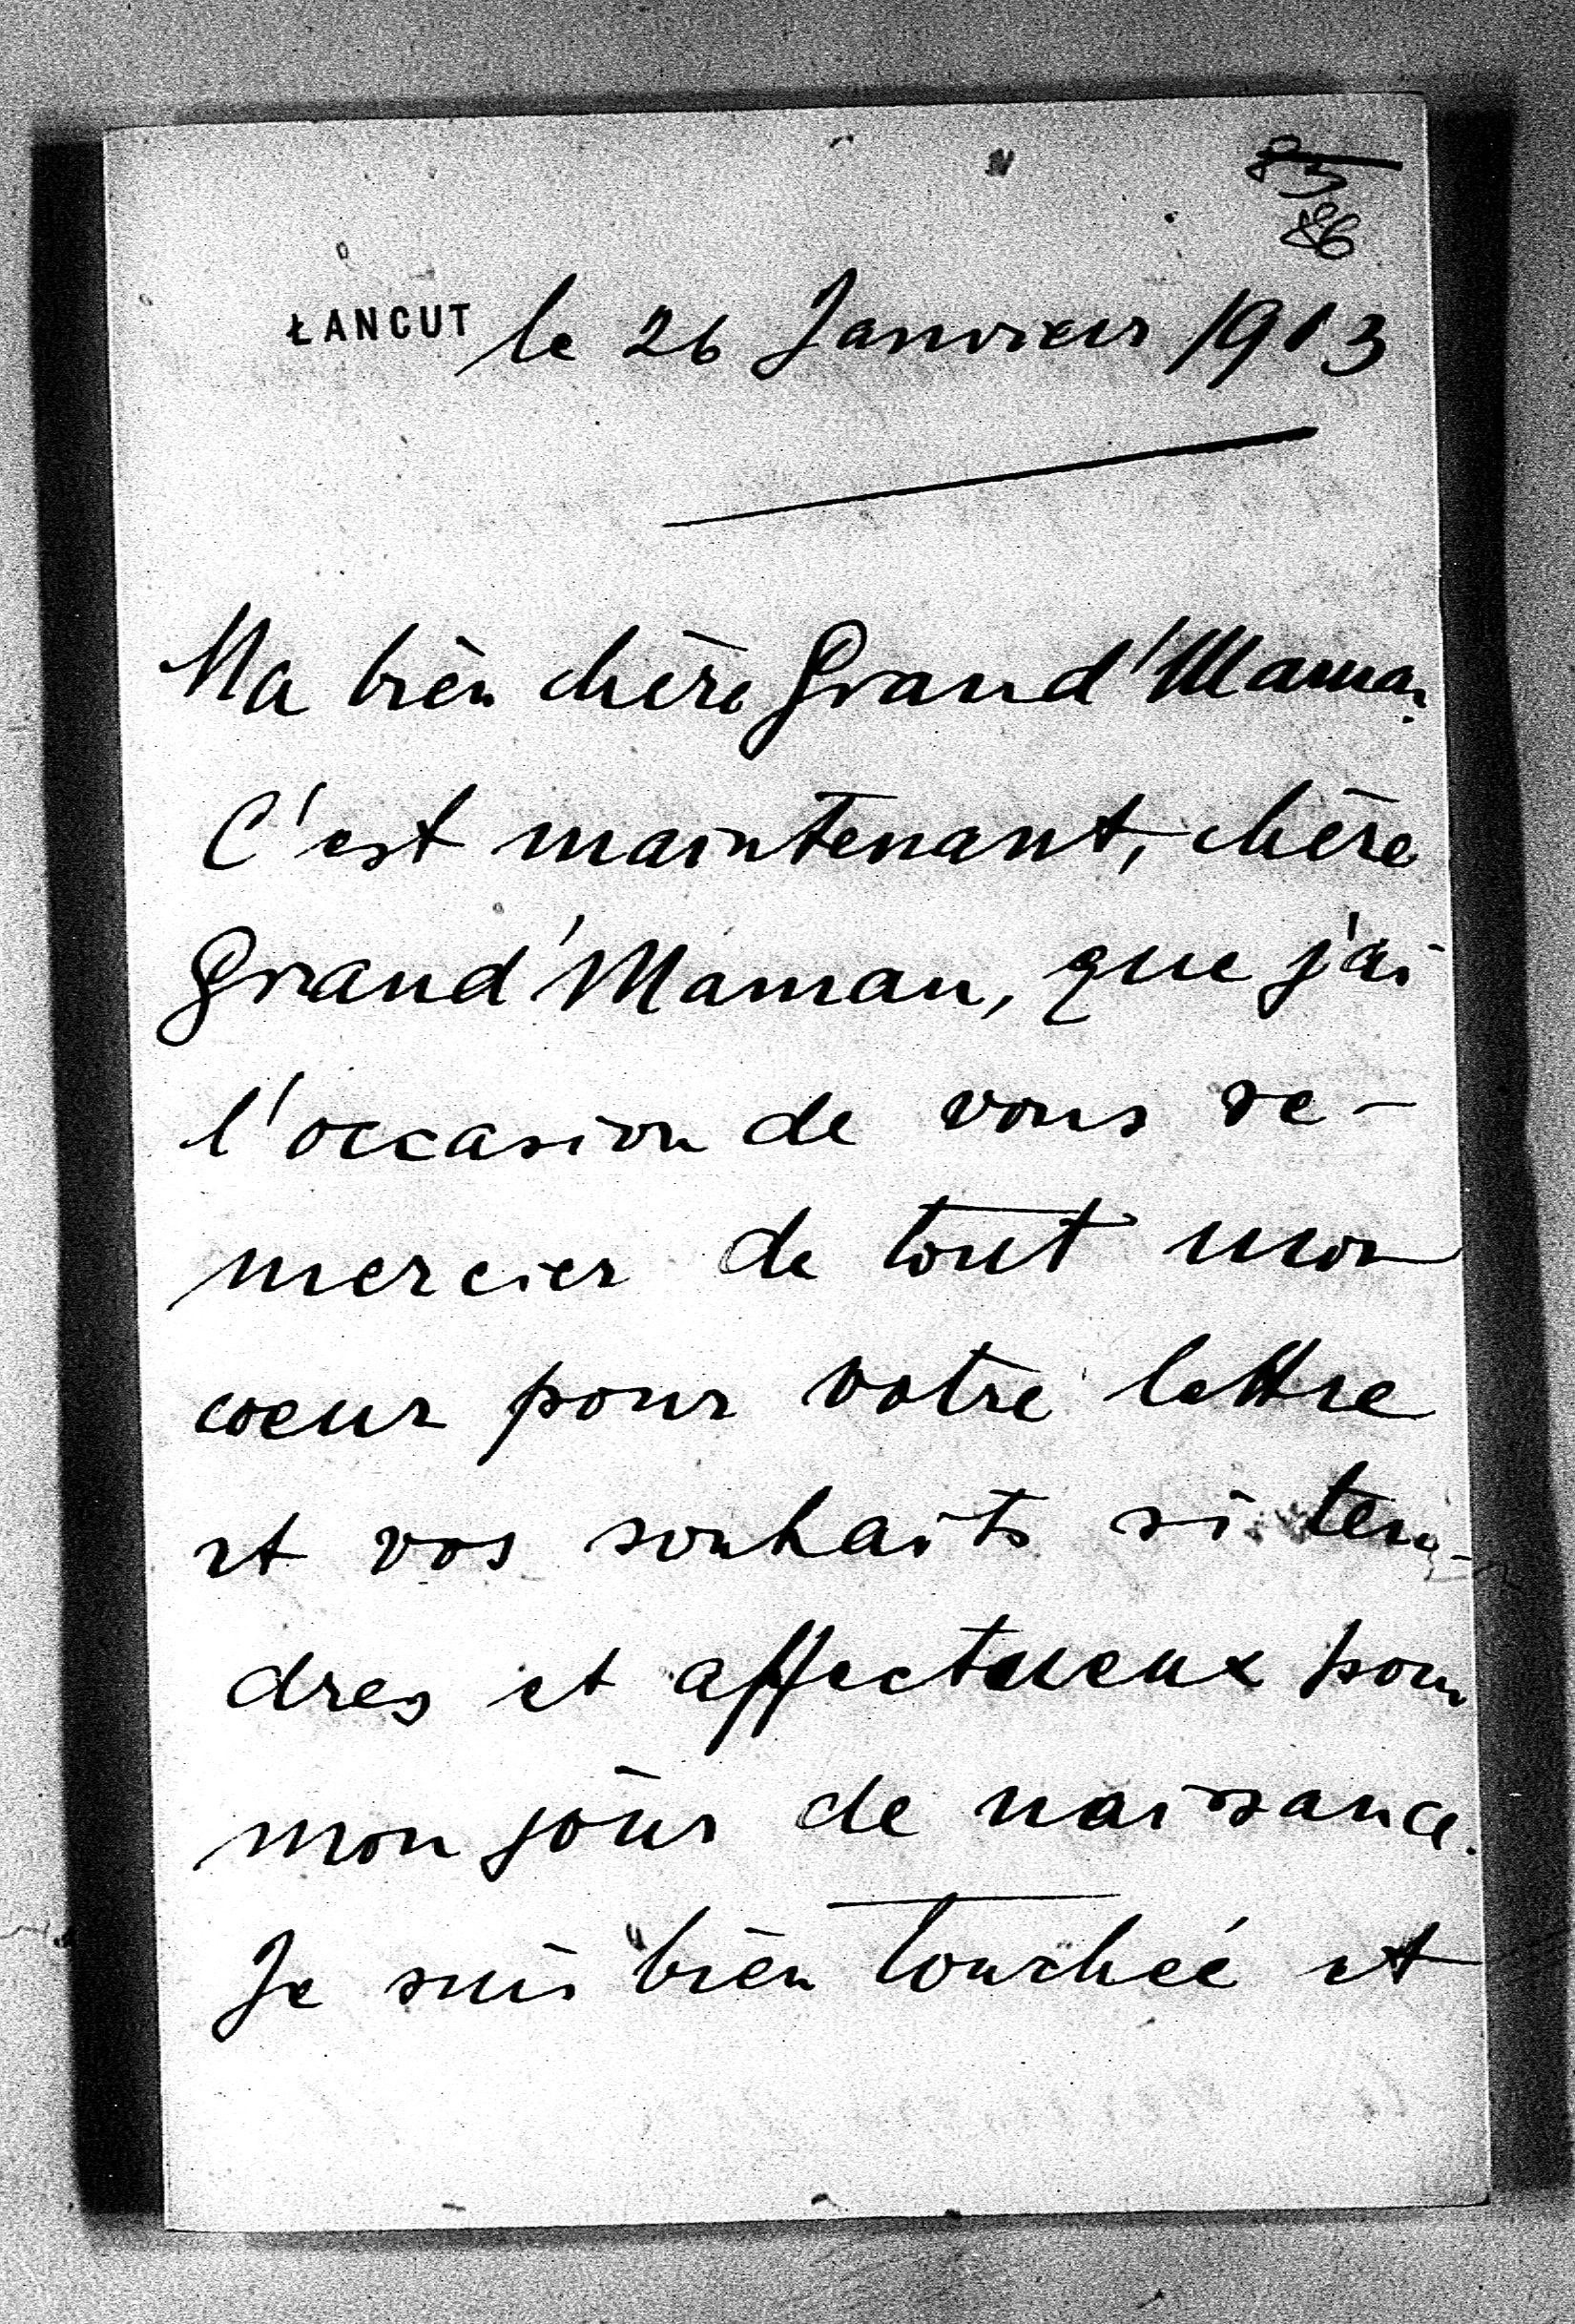 85
86
ŁANCUT le 26 Janvier 1913
Ma bien chère Grand'Maman
C'est maintenant, chère
Grand'Maman, que j'ai
l'occasion de vous re-
mercier de tout mon
coeur pour votre lettre
et vos souhaits si ten-
dres et affectueux pour
mon jour de naissance.
Je suis bien touchée et